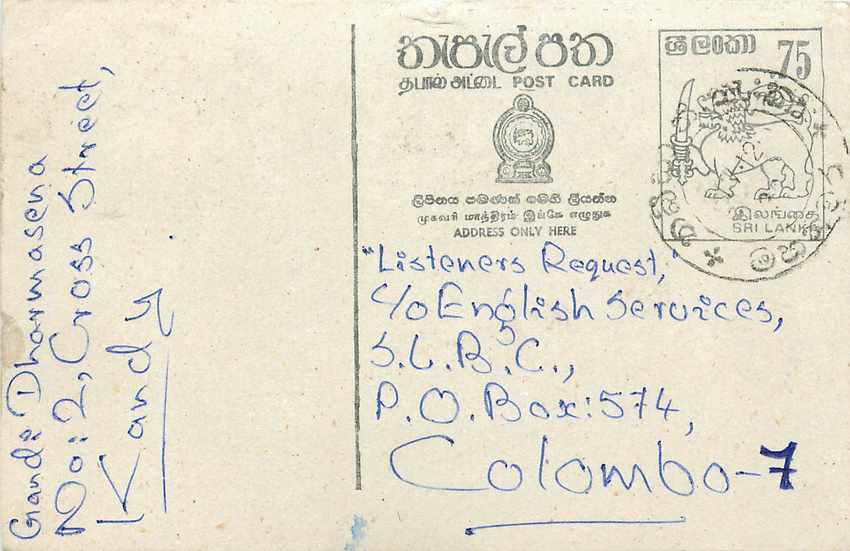 තැපැල් පත
தபால் அட்டை POST CARD
ලිපිනය පමණක් මෙහි ලියන්න
முகவரி மாத்திரம் இங்கே எழுதுக
ADDRESS ONLY HERE
ශ්‍රී ලංකා 75
இலங்கை
SRI LANKA
"Listeners Request,"
C/o English Services,
S.L.B.C.,
P.O.Box:574,
Colombo-7
Gandi Dharmasena
No:2, Cross Street,
Kandy